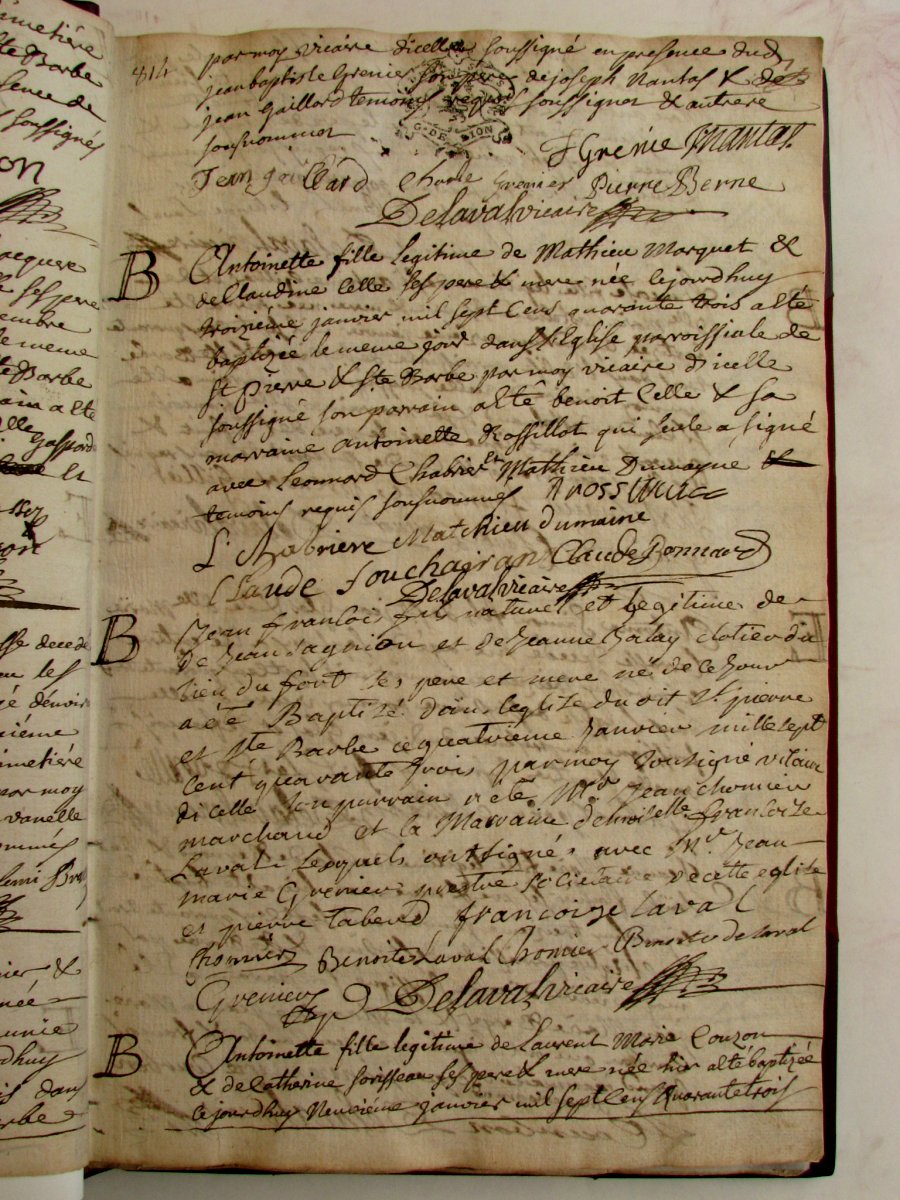 metière
te Barbe
sence de
soussignés
on
acques
ses pere
embre
le meme
te Barbe
a esté
Gaspard
814
par moy vicaire dicelle soussigné en presence dud
jean baptiste Grenier son pere de joseph Nantas & de
jean Gaillard temoins requis soussignes & autre
sousnommer
G. DE LION
Grenie Nantas
Jean gaillard Grenier Pierre Berne
Delaval vicaire
B Antoinette fille legitime de Mathieu Marquet &
de Claudine Celle ses pere & mere née cejourdhuy
troizième janvier mil sept cens quarante trois a esté
baptizée le meme jour dans l'Eglise parroissiale de
St Pierre & Ste Barbe par moy vicaire dicelle
soussigné son parrain a esté benoit Celle & sa
marraine Antoinette Rossillot qui seule a signé
avec Leonnard Chabrier & Mathieu Dumayne
temoins requis sousnommes
L. Chabriere Matthieu dumaine
Claude Souchairan Claude Bonnard
Delaval vicaire
B Jean francois fils naturel et legitime de
de Jean Jagnion et de Jeanne Balay clotier du
lieu du fort ses pere et mere né de ce Jour
a été Baptizé dans leglise du dit St pierre
et Ste Barbe ce quatrieme Janvier mille sept
cent quarante trois par moy sousigné vicaire
dicelle son parrain a été Mr Jean chomier
marchand et la Marraine demoizelle francoize
Laval Lesquels ont signés avec Mr Jean
marie Grenier prestre societaire de cette eglise
et pierre francoize laval
chomier Benoite Laval Chomier Benoite de laval
Grenier Delaval vicaire
B Antoinette fille legitime de Laurent Marie Couzon
& de Catherine Soisseau ses pere & mere née hier a esté baptizée
cejourdhuy Neuvième janvier mil sept cens quarante trois
decede
les
dénvir
ième
metière
par moy
vanelle
ommés
Bru
ier &
née
unie
dhuy
dans
rbe